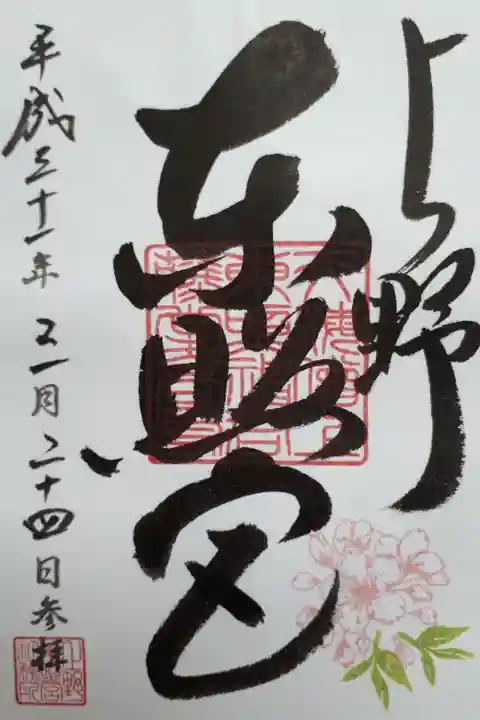 上野
東照宮
平成三十一年三月二十四日参拝